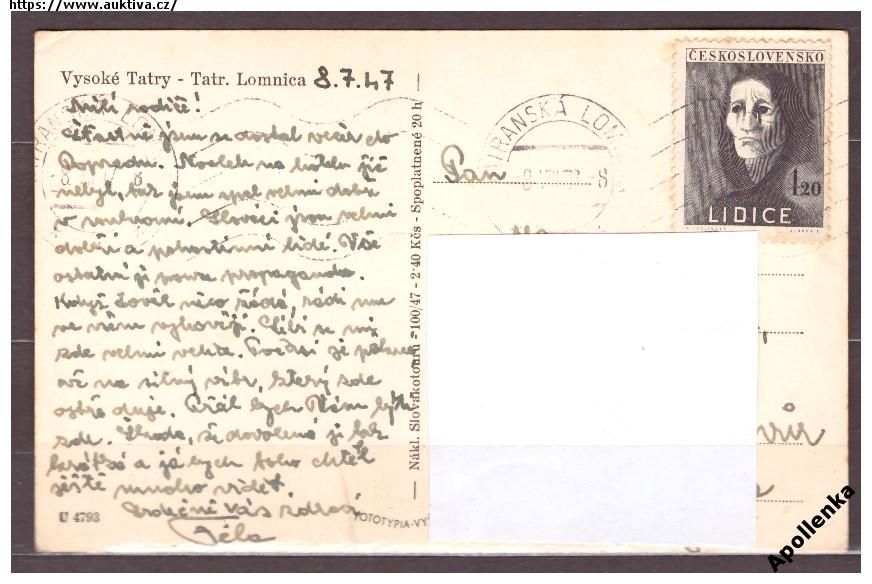 https://www.auktiva.cz/
Vysoké Tatry - Tatr. Lomnica 8.7.47
Milí rodiče!
Šťastně jsem se dostal večer do
Popradu. Nocleh na hotelu již
nebyl, tak jsem spal velmi dobře
v soukromí. Slováci jsou velmi
dobří a pohostinní lidé. Vše
ostatní je pouze propaganda.
Když člověk něco žádá, rádi mu
ve všem vyhovějí. Líbí se mi
zde velmi velice. Počasí je pěkné
až na silný vítr, který zde
ostře duje. Přál bych Vám být
zde. Škoda, že dovolená je tak
krátká a já bych toho chtěl
ještě mnoho vidět.
Srdečně Vás zdraví
U 4793
FOTOTYPIA-VY
Nákl. Slovakotouru - 100/47 - 2·40 Kčs - Spoplatnené 20 h
Pan
TATRANSKÁ LOM
ČESKOSLOVENSKO
1.20
LIDICE
Apollenka